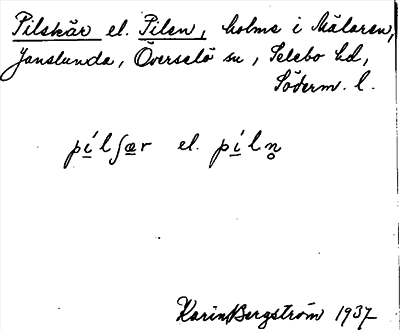 Pilskär el. Pilen, holme i Mälaren,
Janslunda, Överselö sn, Selebo hd,
Söderm. l.
pílʃær el. píln̥
Karin Bergström 1937